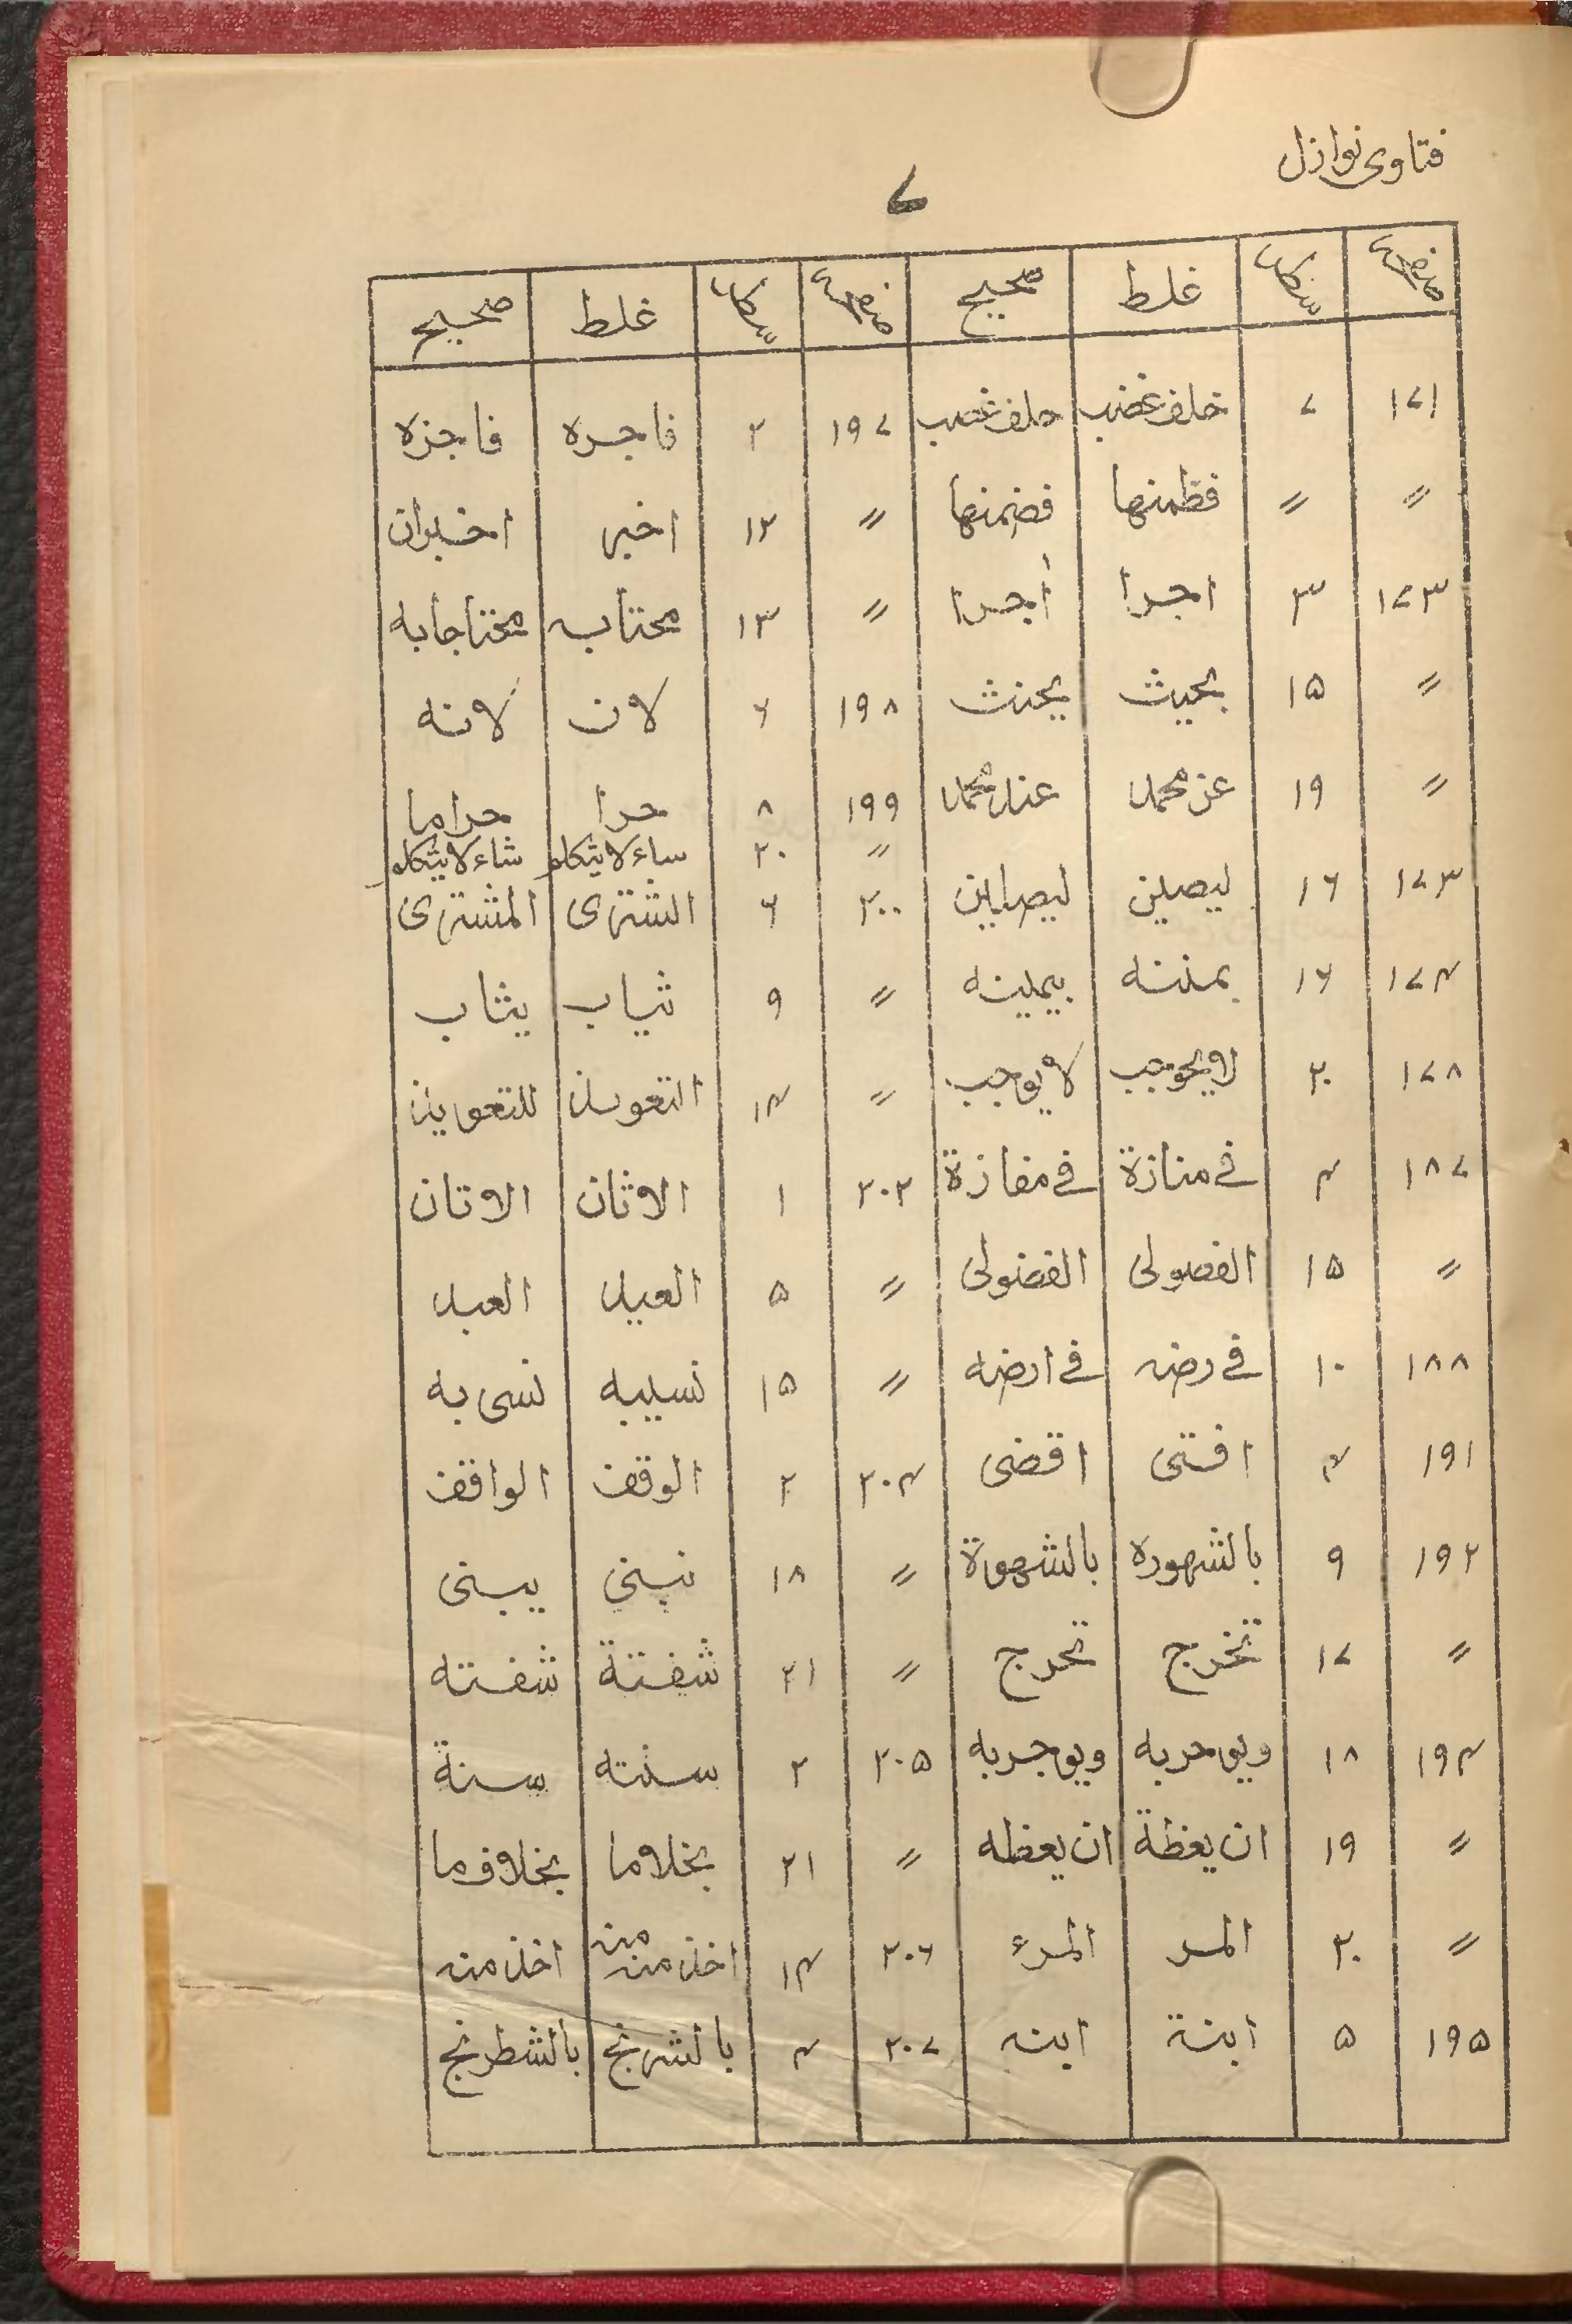 فتاوى نوازل
۷
صفحه سطر غلط صحيح صفحه سطر غلط صحيح
۱۷۱ ۷ خلف غضب حلف غصب ۱۹۷ ۲ فاجره فاجزه
〃 〃 فظمنها فضمنها 〃 ۱۲ اخير اخيران
۱۷۳ ۳ اجرا أجرا 〃 ۱۳ محتاب محتاجا به
〃 ۱۵ بحيث يحنث ۱۹۸ ۶ لان لانه
〃 ۱۹ عن محمد عند محمد ۱۹۹ ۸ حرا حراما
〃 ۲۰ ساء لا يتكلم شاء لا يتكلم
۱۷۳ ۱۶ ليصلين ليصلين ۲۰۰ ۶ الشترى المشترى
۱۷۴ ۱۶ بمننه بيمينه 〃 ۹ ثياب يثاب
۱۷۸ ۲۰ لا يحوجب لا يوجب 〃 ۱۴ التعويذ للتعويذ
۱۸۷ ۴ فى منازة فى مفازة ۲۰۲ ۱ الاثان الاتان
〃 ۱۵ الفصولى الفضولى 〃 ۵ العيد العبد
۱۸۸ ۱۰ فى رضه فى ارضه 〃 ۱۵ نسيبه نسى به
۱۹۱ ۴ افتى اقضى ۲۰۴ ۲ الوقف الواقف
۱۹۲ ۹ بالشهوره بالشهورة 〃 ۱۸ نبنى يبنى
〃 ۱۷ تخرج تحرج 〃 ۲۱ شفتة شفته
۱۹۴ ۱۸ ويوحر به ويوجر به ۲۰۵ ۲ سنته سنة
〃 ۱۹ ان يعظة ان يعظه 〃 ۲۱ بخلاما بخلاف ما
〃 ۲۰ المر المرء ۲۰۶ ۱۴ اخذ من منه اخذ منه
۱۹۵ ۵ ابنة ابنه ۲۰۷ ۴ بالشرنج بالشطرنج